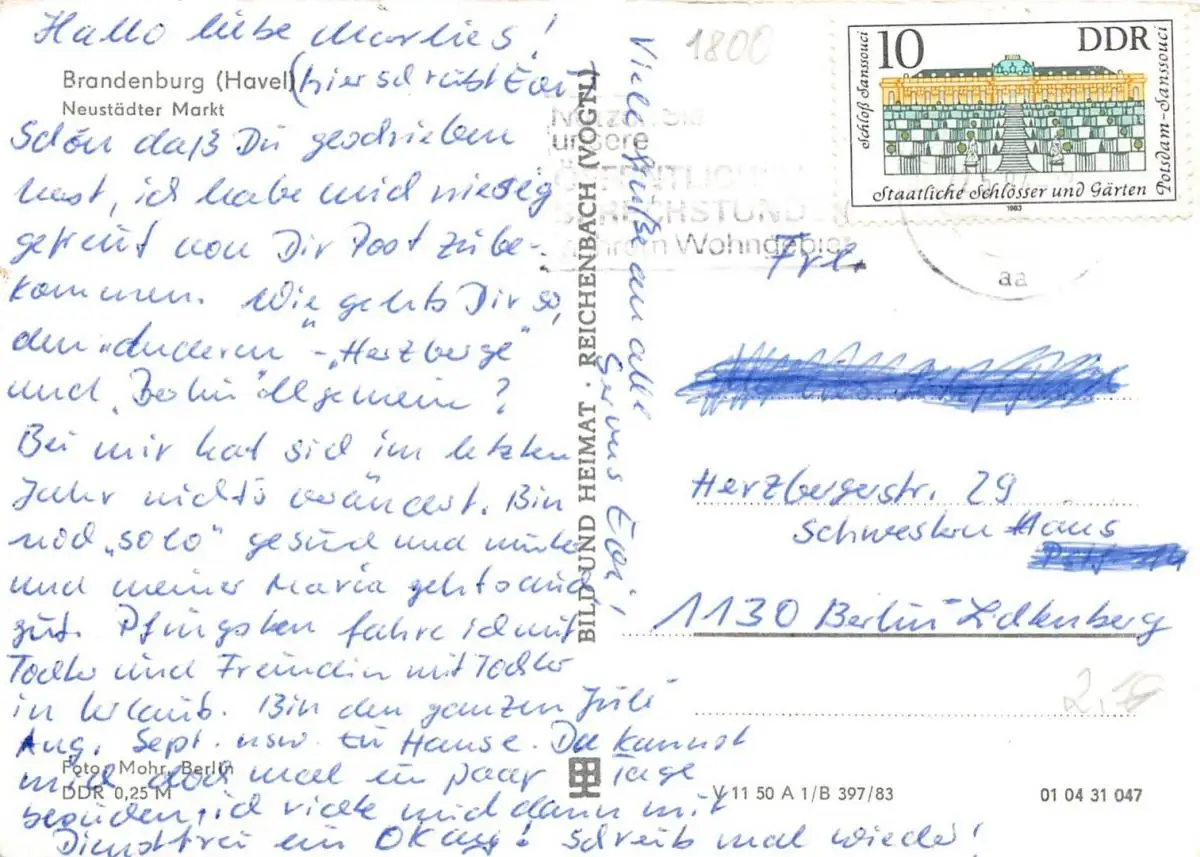 Hallo liebe Marlies!
Brandenburg (Havel)
Neustädter Markt
(hier schreibt Evi
Schön daß Du geschrieben
hast, ich habe mich riesig
gefreut von Dir Post zu be-
kommen. Wie gehts Dir so,
den anderen - „Herzberge"
und „Berlin" allgemein?
Bei mir hat sich im letzten
Jahr nichts verändert. Bin
noch „solo" gesund und munter
und meiner Maria gehts auch
gut. Pfingsten fahre ich mit
Tochter und Freundin mit Tochter
in Urlaub. Bin den ganzen Juli
Aug. Sept. usw. zu Hause. Du kannst
mich doch mal ein paar Tage
besuchen, ich richte mich dann mit
Dienstfrei ein OKay! Schreib mal wieder!
Foto: Mohr, Berlin
DDR 0,25 M
Viele Grüße an alle
Servus Evi!
BILD UND HEIMAT · REICHENBACH (VOGTL)
1800
10 DDR
Schloß Sanssouci
Potsdam-Sanssouci
Staatliche Schlösser und Gärten
1983
unsere
SPRECHSTUNDEN
Wohngebiet
aa
Frl.
Herzbergerstr. 29
Schwestern Haus
1130 Berlin Lichtenberg
2,10
V 11 50 A 1/B 397/83
01 04 31 047